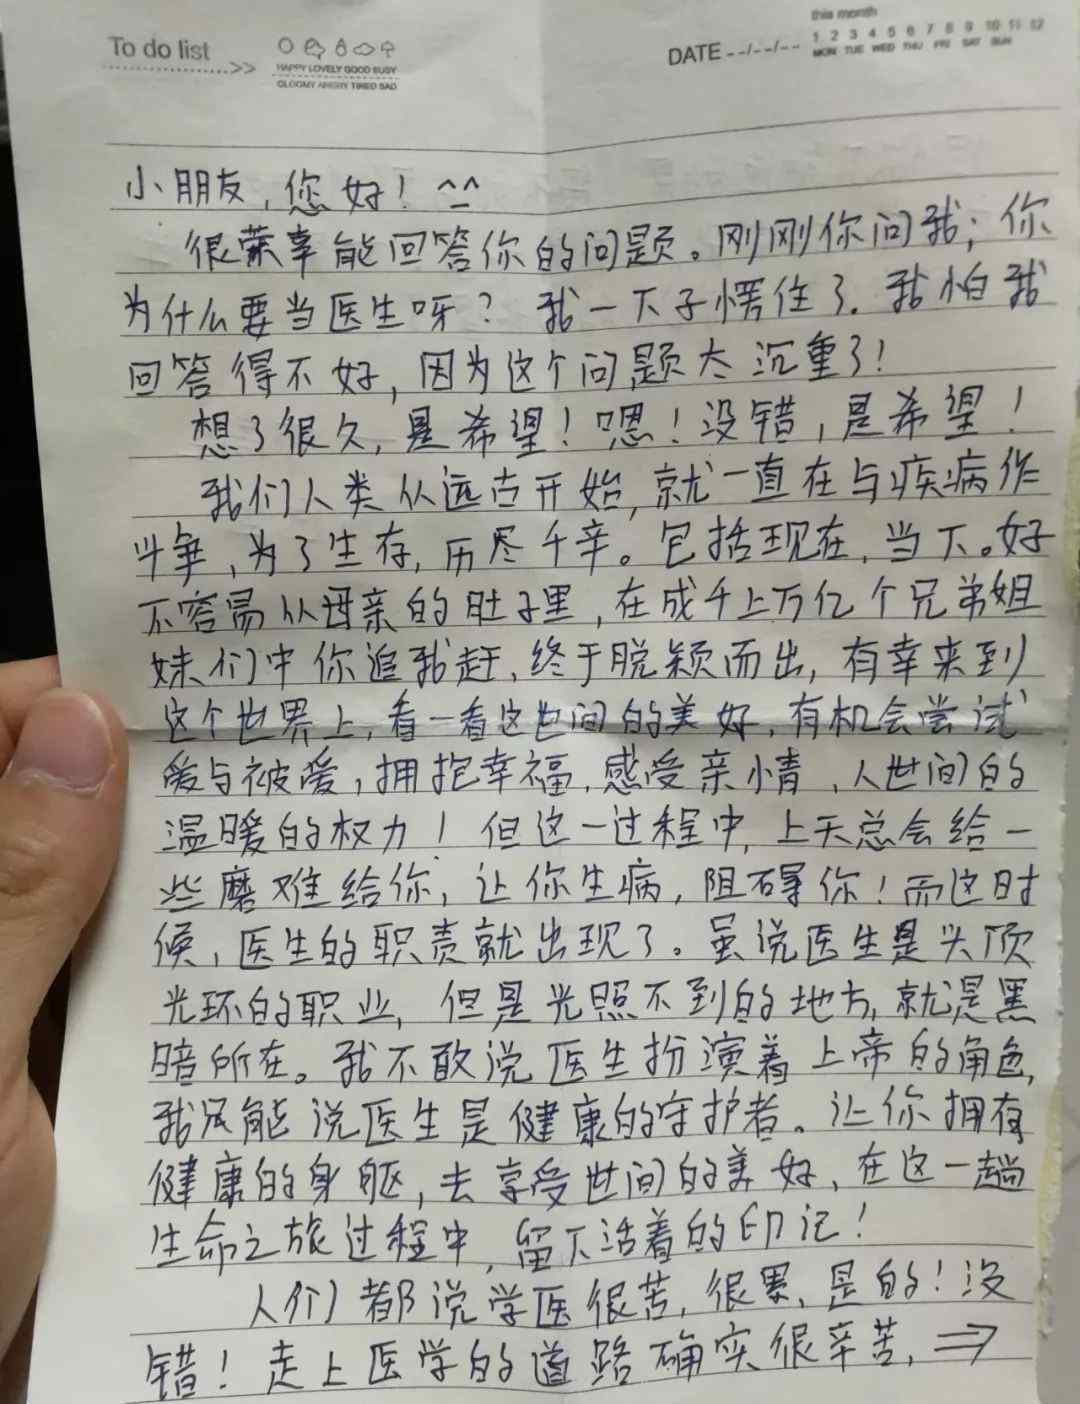 this month
To do list
1 2 3 4 5 6 7 8 9 10 11 12
DATE --/--/--
MON TUE WED THU FRI SAT SUN
HAPPY LOVELY GOOD BUSY
GLOOMY ANGRY TIRED SAD
小朋友,您好! ^_^
很荣幸能回答你的问题。刚刚你问我;你
为什么要当医生呀?我一下子愣住了.我怕我
回答得不好,因为这个问题太沉重了!
想了很久,是希望!嗯!没错,是希望!
我们人类从远古开始,就一直在与疾病作
斗争,为了生存,历尽千辛。包括现在,当下。好
不容易从母亲的肚子里,在成千上万亿个兄弟姐
妹们中你追我赶,终于脱颖而出,有幸来到
这个世界上,看一看这世间的美好,有机会尝试
爱与被爱,拥抱幸福,感受亲情,人世间的
温暖的权力!但这一过程中,上天总会给一
些磨难给你,让你生病,阻碍你!而这时
候,医生的职责就出现了。虽说医生是头顶
光环的职业,但是光照不到的地方,就是黑
暗所在。我不敢说医生扮演着上帝的角色,
我只能说医生是健康的守护者。让你拥有
健康的身躯,去享受世间的美好,在这一趟
生命之旅过程中,留下活着的印记!
人们都说学医很苦,很累,是的!没
错!走上医学的道路确实很辛苦,⇒